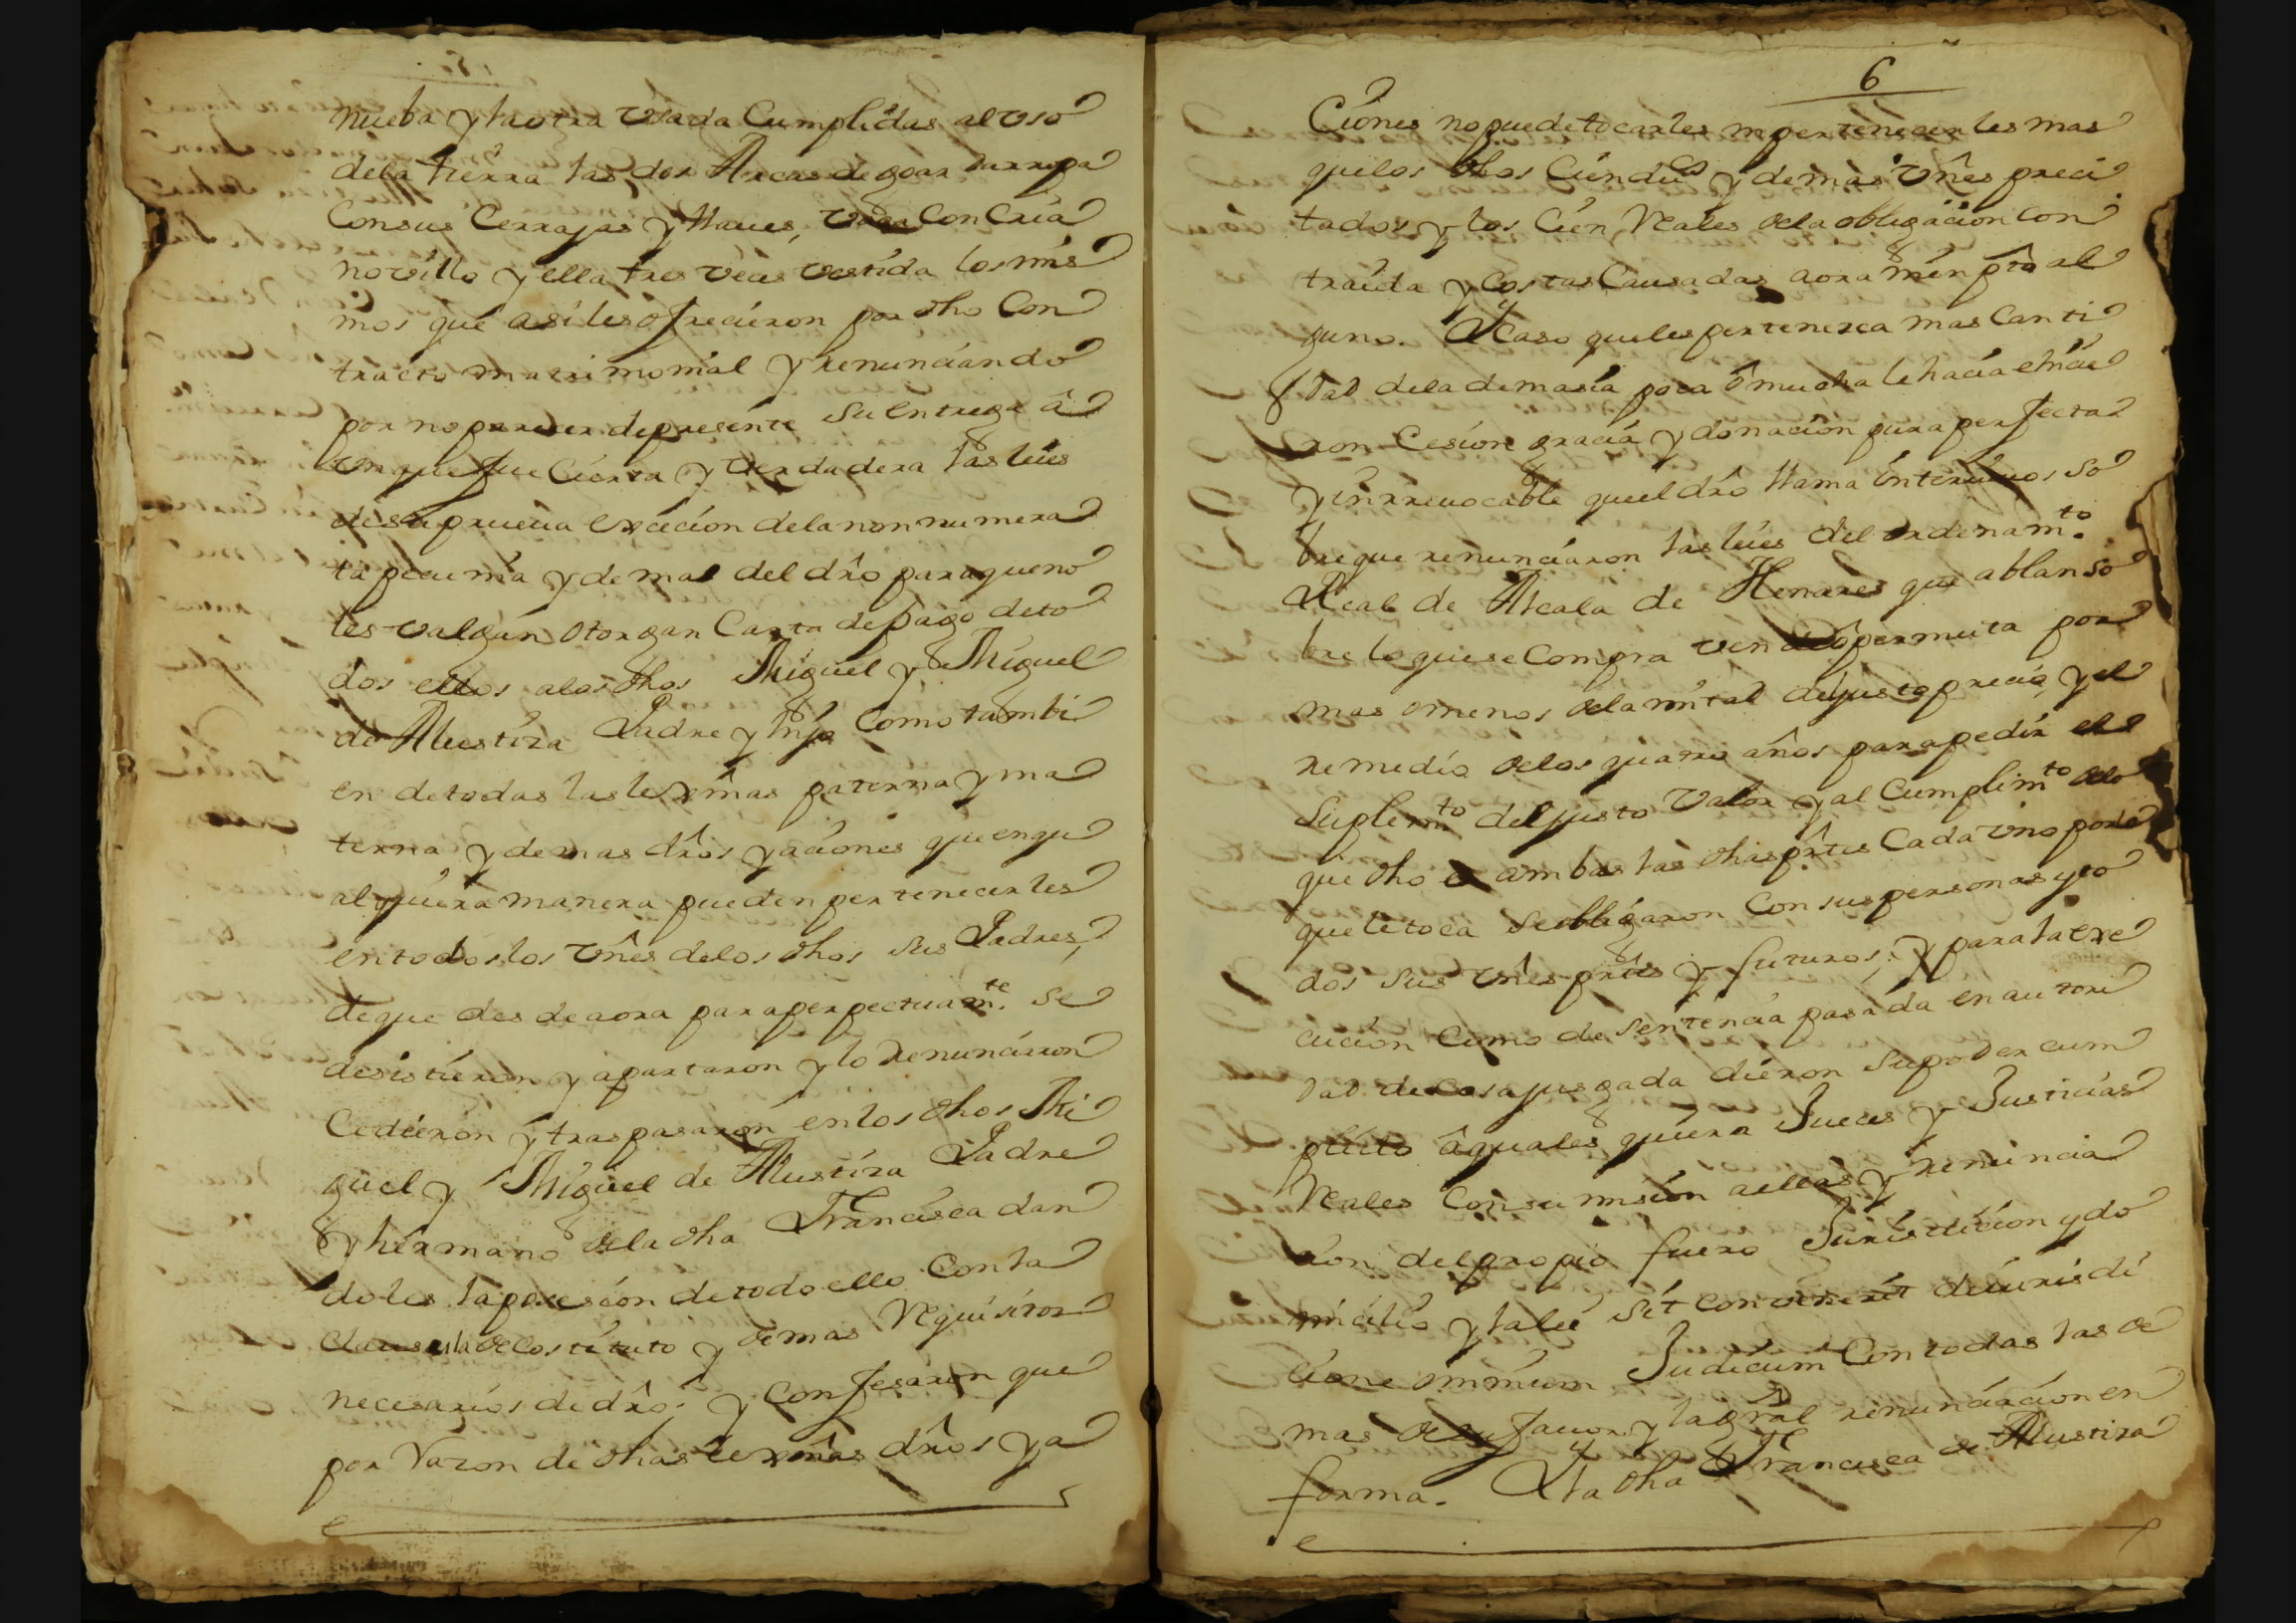 nueba y la otra vsada Cumplidas al vso
dela tierra las dos Arcas de goar darropa
Consus Cerrajas y llaues, vaca Con Cria
novillo y ella tres veces vestida los mis
mos que asi les ofrecieron por dho Con
tracto matrimonial y renunciando
por no parecer de presente su entrega a
vnque fue Cierta y verdadera las leies
desu prueua excecion dela non numera
ta pecunia y demas del dro para queno
les valgan otorgan Carta de pago deto
dos ellos alos dhos Miguel y Miguel
de Alustiza Padre y hijo Como tambi
en detodas las lexmas paterna y ma
terna y demas dros y aciones que enqu
alquiera manera pueden pertenecerles
entodos los vnes delos dhos sus Padres,
deque desde aora para perpectuamte. se
desistieron y apartaron y lo Renunciaron
Cedieron y traspasaron enlos dhos Mi
guel y Miguel de Alustiza Padre
y hermano dela dha Francisca dan
doles la posesion detodo ello Conla
Clausula de Costituto y demas Requisitos
necesarios de dro; y Confesaron que
por Razon de dhas lexmas dros y a
6
Ciones no puede tocarles ni pertenecerles mas
quelos dhos Cienducs y demas vnes preci
tados y los Cien Reales dela obligacion con
traida y Costas Causadas aora nien pto al
guno. Y Caso queles pertenezca mas Canti
dad dela demasia poca o mucha le hacia e hicie
ron Cesion gracia y donacion pura perfecta
y inrreuocable quel dro llama interviuos so
breque renunciaron las leies del ordenamto.
Real de Alcala de Henares que ablan so
bre lo quese Compra vende o permuta por
mas o menos dela mitad del justo precio, y el
remedio delos quatro años para pedir el
Suplemto del justo valor y al Cumplimto delo
que dho es ambas las dhas ptes Cada vno porlo
quele toca se obligaron Con sus personas y to
dos sus vnes prtes y futuros; y para la exe
cucion Como de sentencia pasada en autori
dad de cosa jusgada dieron su poder cum
plido a quales quiera Jueces y Justicias
Reales Con sumision aellas y renuncia
cion del propio fuero Jurisdicion y do
micilio y la lei sit convenerit de iurisdi
cione omnium Judicum Con todas las de
mas desu fauor y la gral renunciacion en
forma. Y la dha Francisca de Alustiza